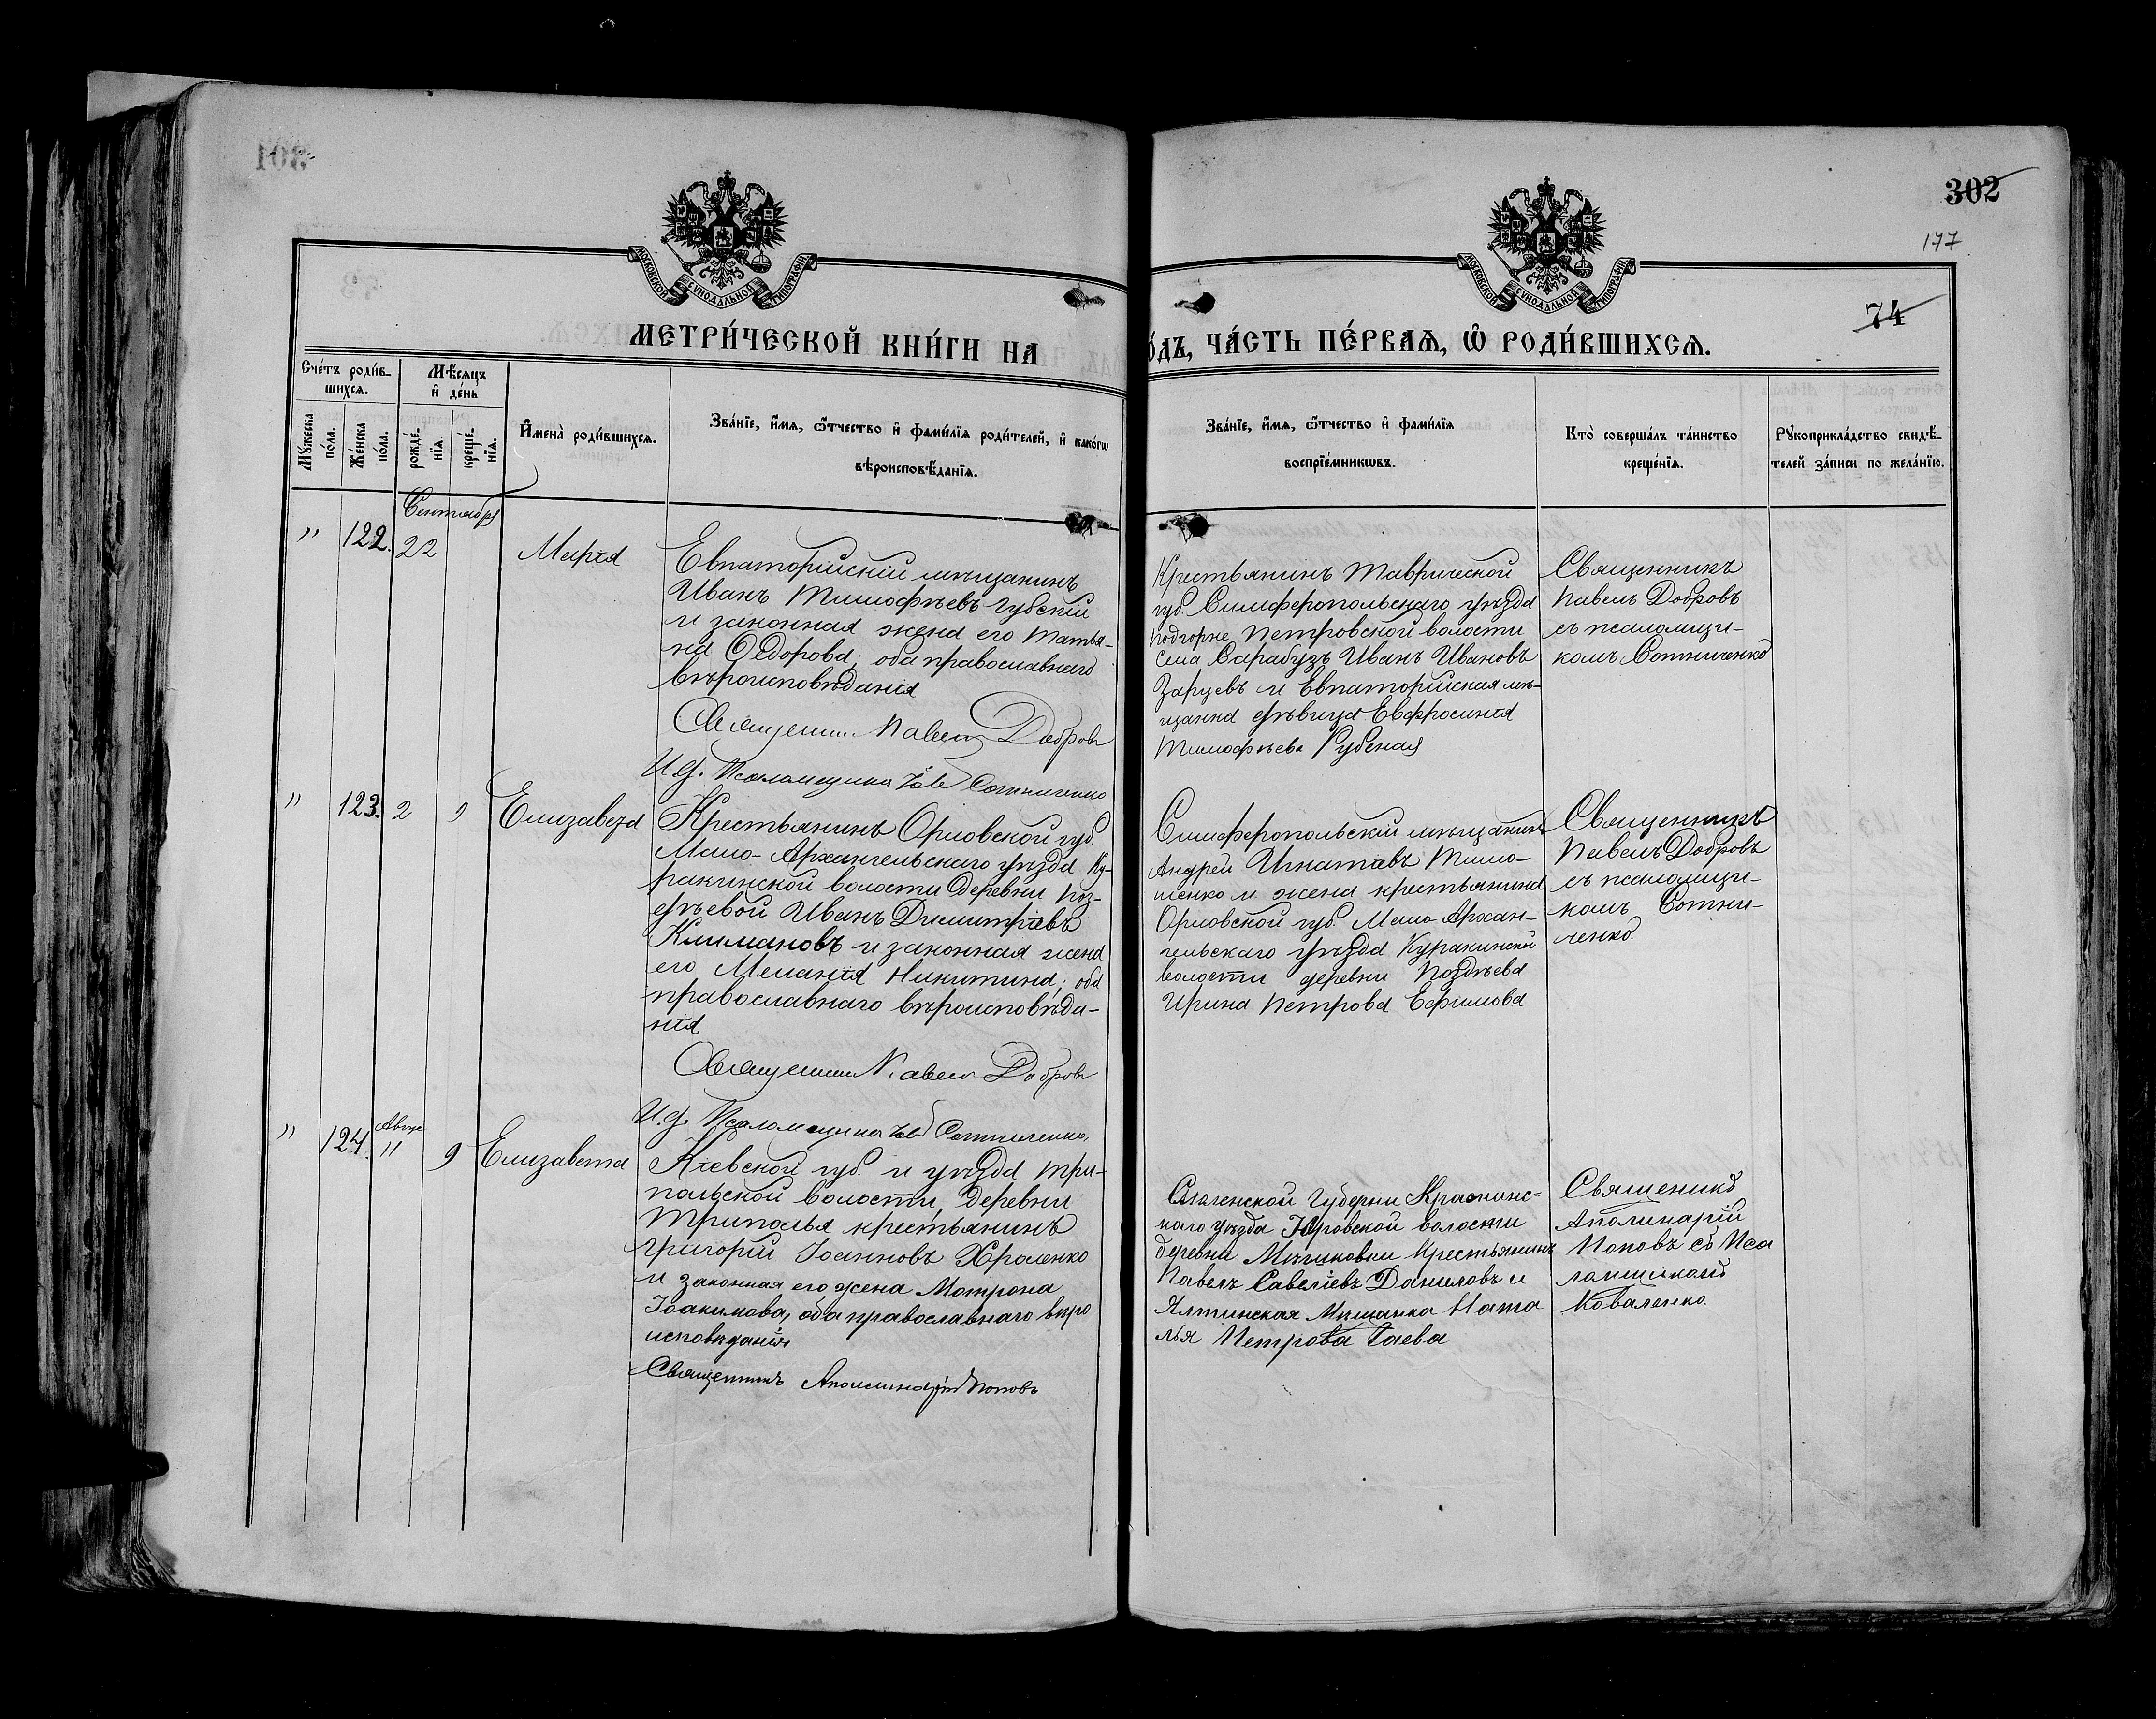 302
177
74
МОСКОВСКОЙ СѴНОДАЛЬНОЙ ТИПОГРАФІИ
МОСКОВСКОЙ СѴНОДАЛЬНОЙ ТИПОГРАФІИ
МЕТРИ́ЧЕСКОЙ КНИ́ГИ НА
О́ДЪ, ЧА́СТЬ ПЕ́РВАЯ, Ѡ РОДИ́ВШИХСЯ.
Сче́тъ роди́в-
шихся.
Мꙋ́жеска по́ла.
Же́нска по́ла.
Мѣ́сяцъ
и҆ де́нь
рожде́-
нїѧ.
креще́-
нїѧ.
И҆мена̀ роди́вшихся.
Зва́нїе, и҆́мѧ, ѻ҆́тчество и҆ фами́лїѧ роди́телей, и҆ како́гѡ
вѣроисповѣ́данїѧ.
Зва́нїе, и҆́мѧ, ѻ҆́тчество и҆ фами́лїѧ
воспрїе́мникѡвъ.
Кто̀ соверша́лъ та́инство
креще́нїѧ.
Рꙋкоприкла́дство свидѣ́-
телей за́писи по жела́нїю.
Сентября
" 122. 22
Марія
Евпаторійскій мѣщанинъ
Иванъ Тимофѣевъ Губскій
и законная жена его Татья-
на Ѳедорова; оба православнаго
вѣроисповѣданія
Священник Павелъ Добровъ
И.д. Псаломщика Сотниченко
Крестьянинъ Таврической
губ. Симферопольскаго уѣзда
Подгорне Петровской волости
села Сарабузъ Иванъ Ивановъ
Заруевъ и Евпаторійская мѣ-
щанка дѣвица Евфросинія
Тимофѣева Губская
Священникъ
Павелъ Добровъ
съ псаломщи-
комъ Сотниченко
" 123. 2 9
Елизавета
Крестьянинъ Орловской губ.
Мало-Архангельскаго уѣзда Ку-
ракинской волости деревни Поз-
дѣевой Иванъ Димитріевъ
Климановъ и законная жена
его Меланія Никитина; оба
православнаго вѣроисповѣда-
нія
Священник Павелъ Добровъ
И.д. Псаломщика Сотниченко
Симферопольскій мѣщанинъ
Андрей Игнатіевъ Тимо-
шенко и жена крестьянина
Орловской губ. Мало-Архан-
гельскаго уѣзда Куракинской
волости деревни Поздѣева
Ирина Петрова Ефимова
Священникъ
Павелъ Добровъ
съ псаломщи-
комъ Сотни-
ченко.
Авгус
" 124. 11 9
Елизавета
Кіевской губ. и уѣзда Три-
польской волости, деревни
Триполья крестьянинъ
Григорій Іоанновъ Хроленко
и законная его жена Мотрона
Іоакимова, оба православнаго вѣро
исповѣданія
Священникъ Аполинарій Поповъ
Смоленской Губерни Краснинс-
каго уѣзда Юровской волости
деревни Крестьянинъ
Павелъ Савеліевъ Даниловъ и
Ялтинская Мѣщанка Ната
лья Петрова Гаева
Священикъ
Аполинарій
Поповъ съ Пса
ломщикомъ
Коваленко.